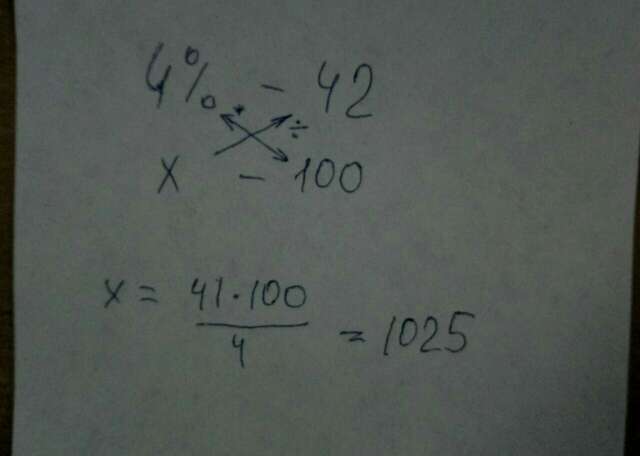 4% - 42
· ÷
x - 100
x = 41·100
4
= 1025